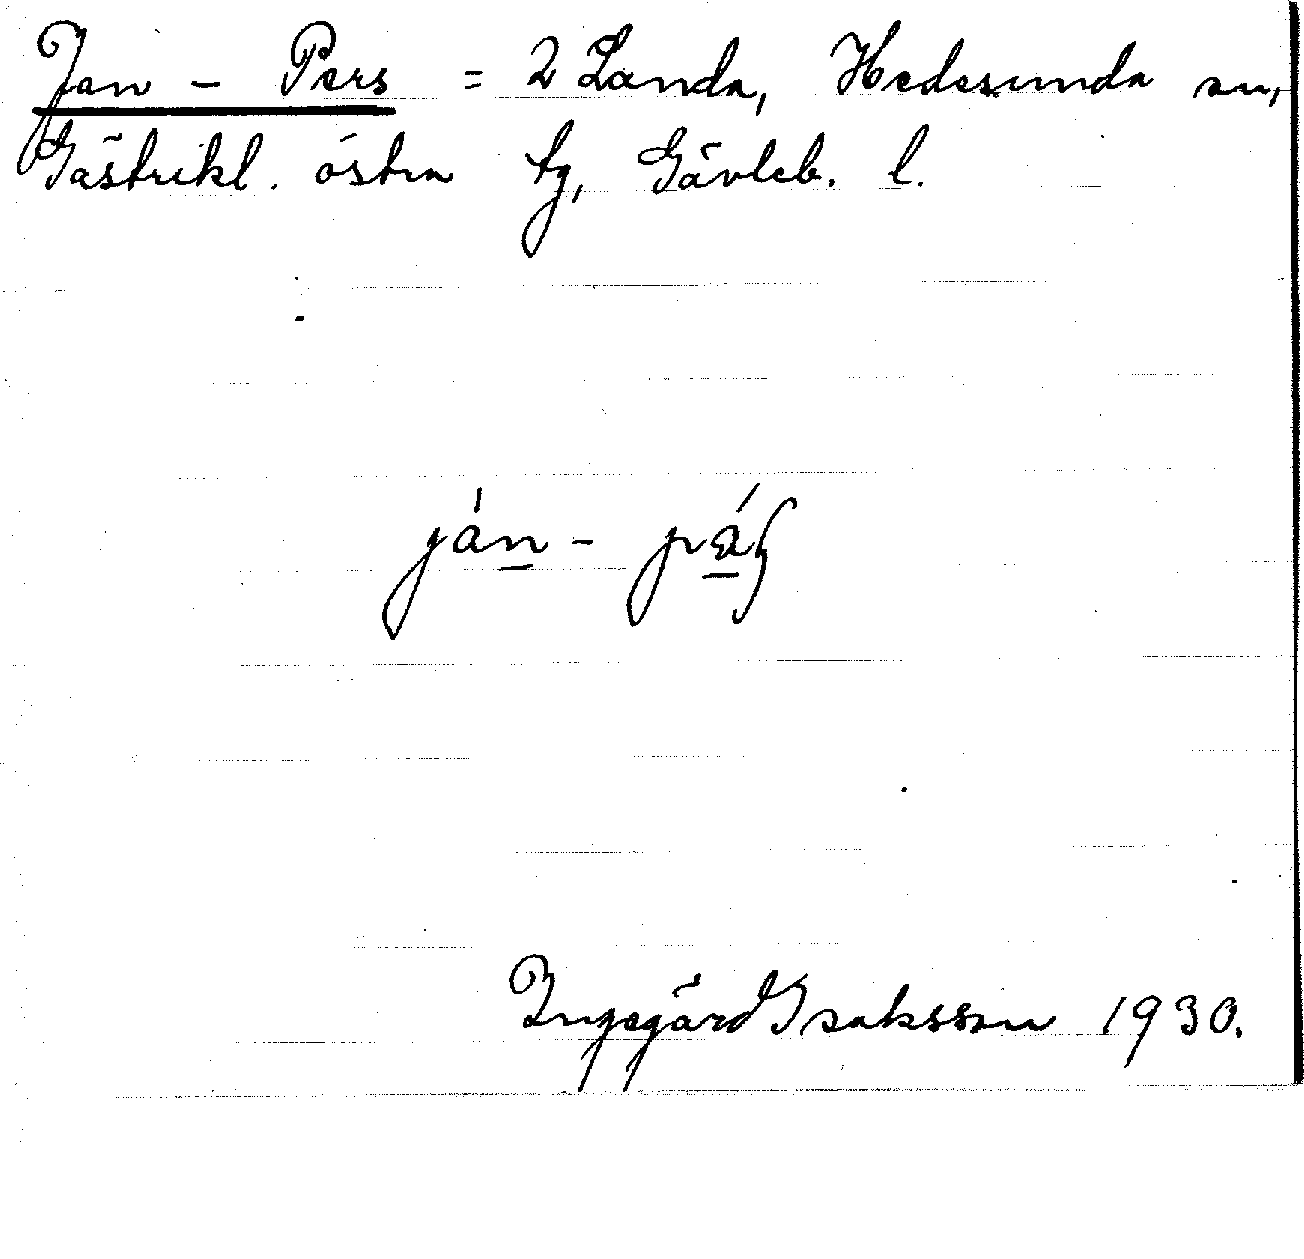 Jan - Pers = 2 Landa, Hedesunda sn,
Gästrikl. östra tg, Gävleb. l.
ján - pä́ʂ
Ingegärd Isaksson 1930.